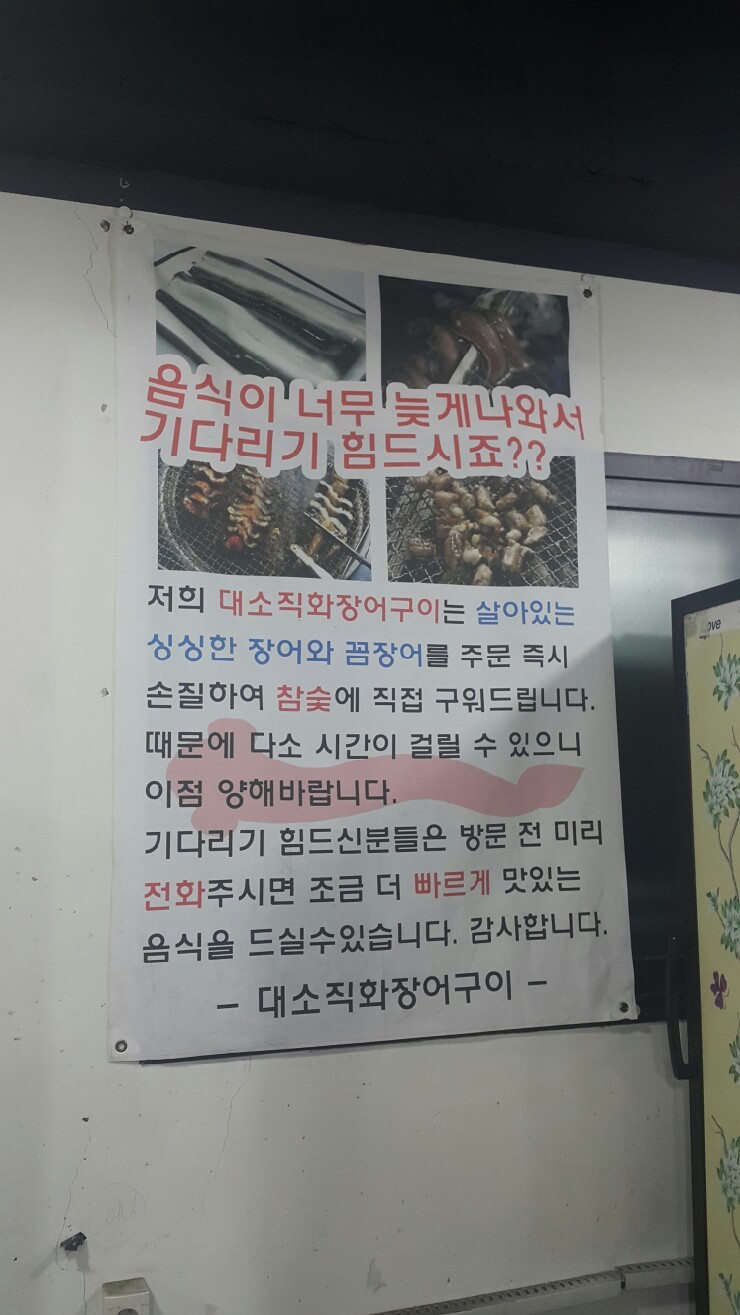 음식이 너무 늦게나와서
기다리기 힘드시죠??
저희 대소직화장어구이는 살아있는
싱싱한 장어와 꼼장어를 주문 즉시
손질하여 참숯에 직접 구워드립니다.
때문에 다소 시간이 걸릴 수 있으니
이점 양해바랍니다.
기다리기 힘드신분들은 방문 전 미리
전화주시면 조금 더 빠르게 맛있는
음식을 드실수있습니다. 감사합니다.
- 대소직화장어구이 -